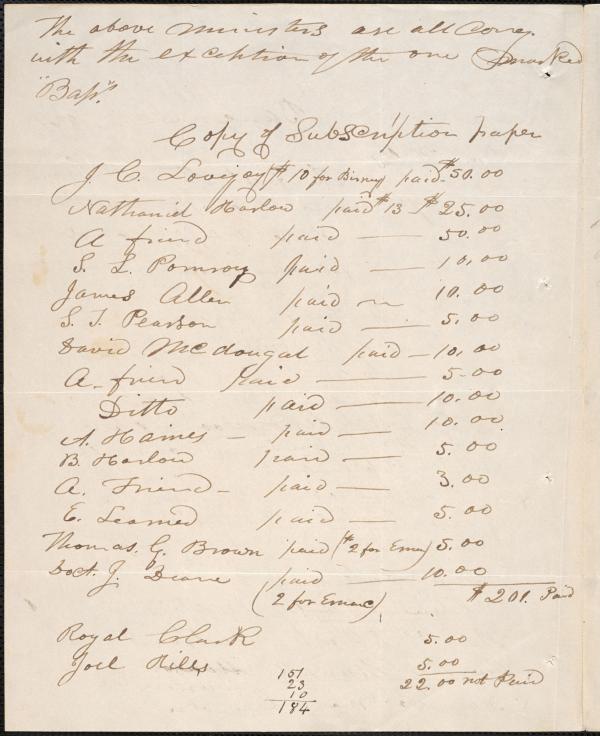 The above ministers are all Cong.
with the exception of the one marked
"Bap."
Copy of Subscription paper
J. C. Lovejoy ($10 for Birney) paid $50.00
Nathaniel Harlow paid $13 $25.00
A friend paid — 50.00
S. L. Pomroy paid — 10.00
James Allen paid — 10.00
S. T. Pearson paid — 5.00
David McDougal paid — 10.00
A friend paid — 5.00
Ditto paid — 10.00
A. Haines — paid — 10.00
B. Harlow paid — 5.00
A. Friend — paid — 3.00
E. Learned paid — 5.00
Thomas. G. Brown paid ($2 for Eman) 5.00
Doct. J. Deane paid — 10.00
(2 for Emanc) $201. Paid
Royal Clark 5.00
Joel Hills 5.00
22.00 not Paid
151
23
10
184